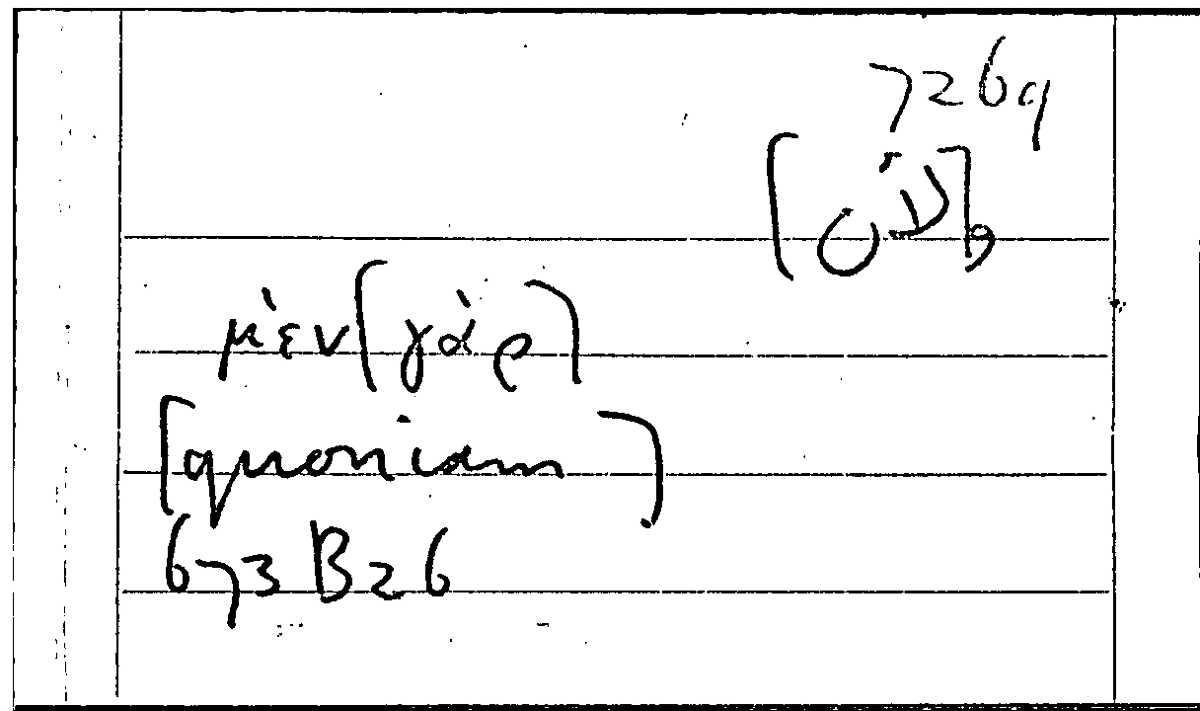 7269
[οὐ],
μὲν [γὰρ]
[quoniam]
673 B 26